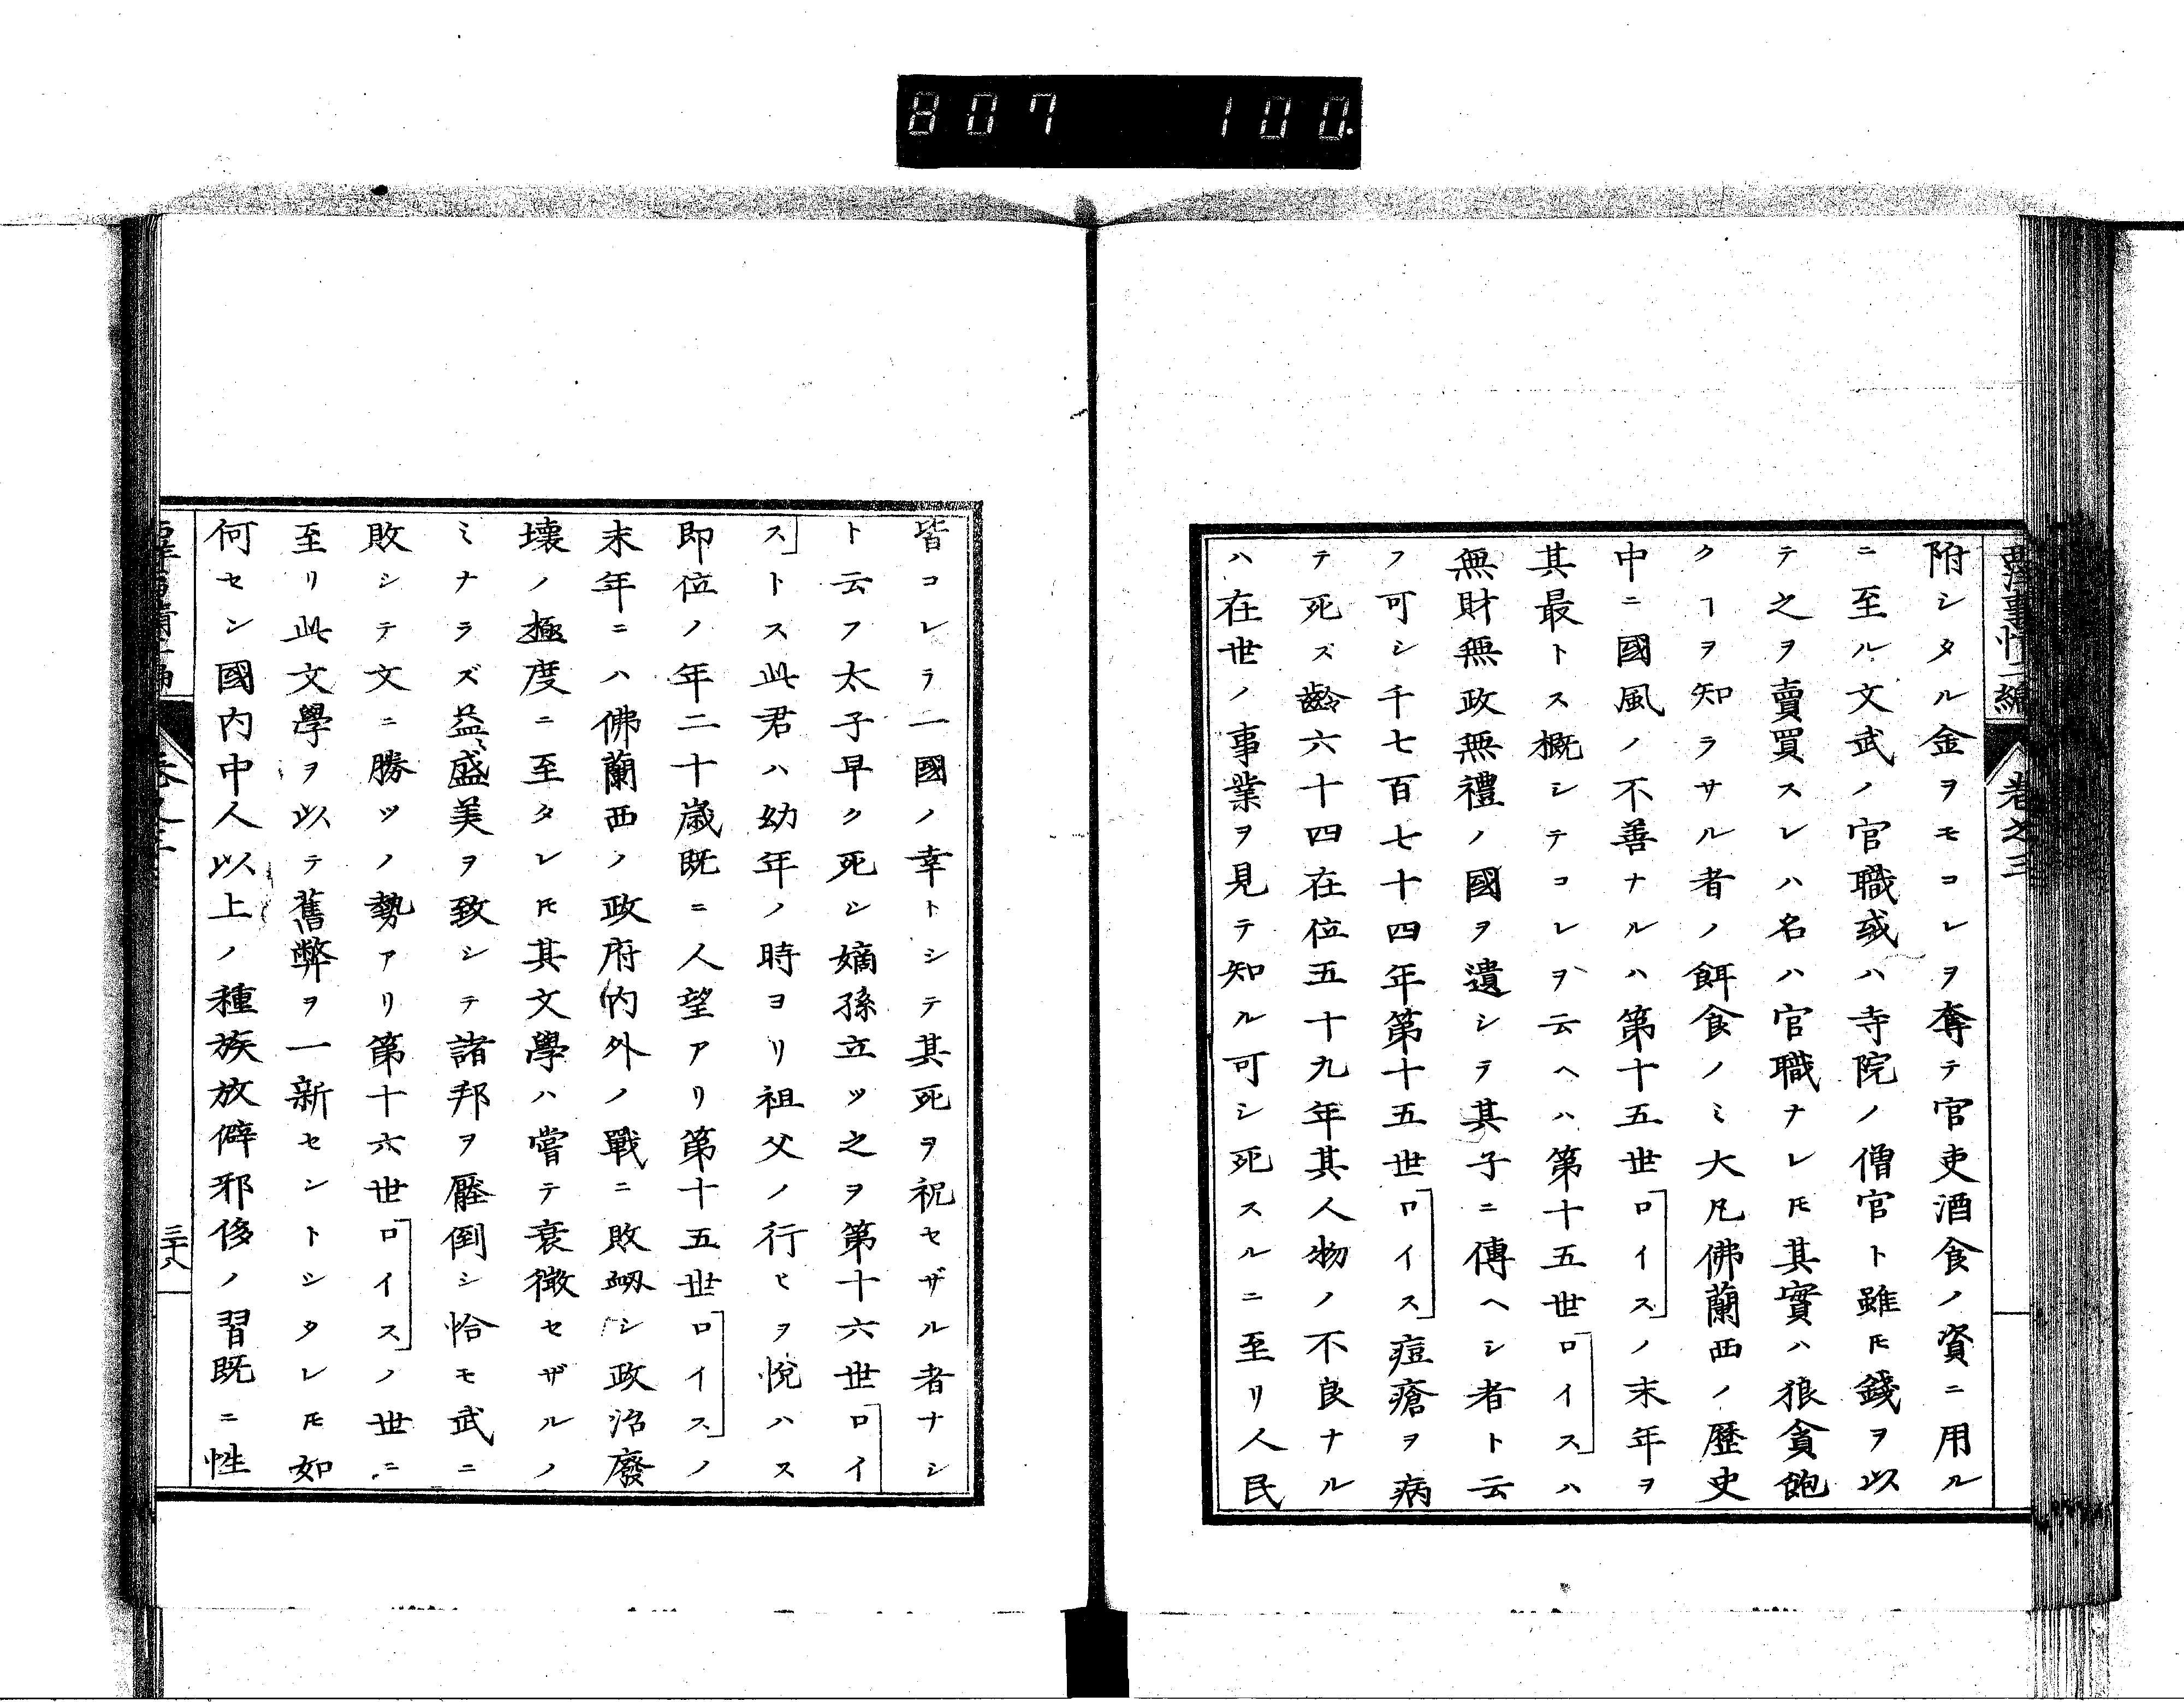 807 100.
西洋事情二編 卷之三
附シタル金ヲモコレヲ奪テ官吏酒食ノ資ニ用ル
ニ至ル文武ノ官職或ハ寺院ノ僧官ト雖𪜈錢ヲ以
テ之ヲ賣買スレハ名ハ官職ナレ𪜈其實ハ狼貪飽
クヿヲ知ラサル者ノ餌食ノミ大凡佛蘭西ノ歷史
中ニ國風ノ不善ナルハ第十五世ロイスノ末年ヲ
其最トス概シテコレヲ云ヘハ第十五世ロイスハ
無財無政無禮ノ國ヲ遺シテ其子ニ傳ヘシ者ト云
フ可シ千七百七十四年第十五世ロイス痘瘡ヲ病
テ死ズ齡六十四在位五十九年其人物ノ不良ナル
ハ在世ノ事業ヲ見テ知ル可シ死スルニ至リ人民
皆コレラ一國ノ幸トシテ其死ヲ祝セザル者ナシ
ト云フ太子早ク死シ嫡孫立ツ之ヲ第十六世ロイ
ストス此君ハ幼年ノ時ヨリ祖父ノ行ヒヲ悅ハス
即位ノ年二十歲既ニ人望アリ第十五世ロイスノ
末年ニハ佛蘭西ノ政府內外ノ戰ニ敗衂シ政治廢
壞ノ極度ニ至タレ𪜈其文學ハ嘗テ衰微セザルノ
ミナラズ益〻盛美ヲ致シテ諸邦ヲ壓倒シ恰モ武ニ
敗シテ文ニ勝ツノ勢アリ第十六世ロイスノ世ニ
至リ此文學ヲ以テ舊弊ヲ一新セントシタレ𪜈如
何セン國內中人以上ノ種族放僻邪侈ノ習既ニ性
三十八